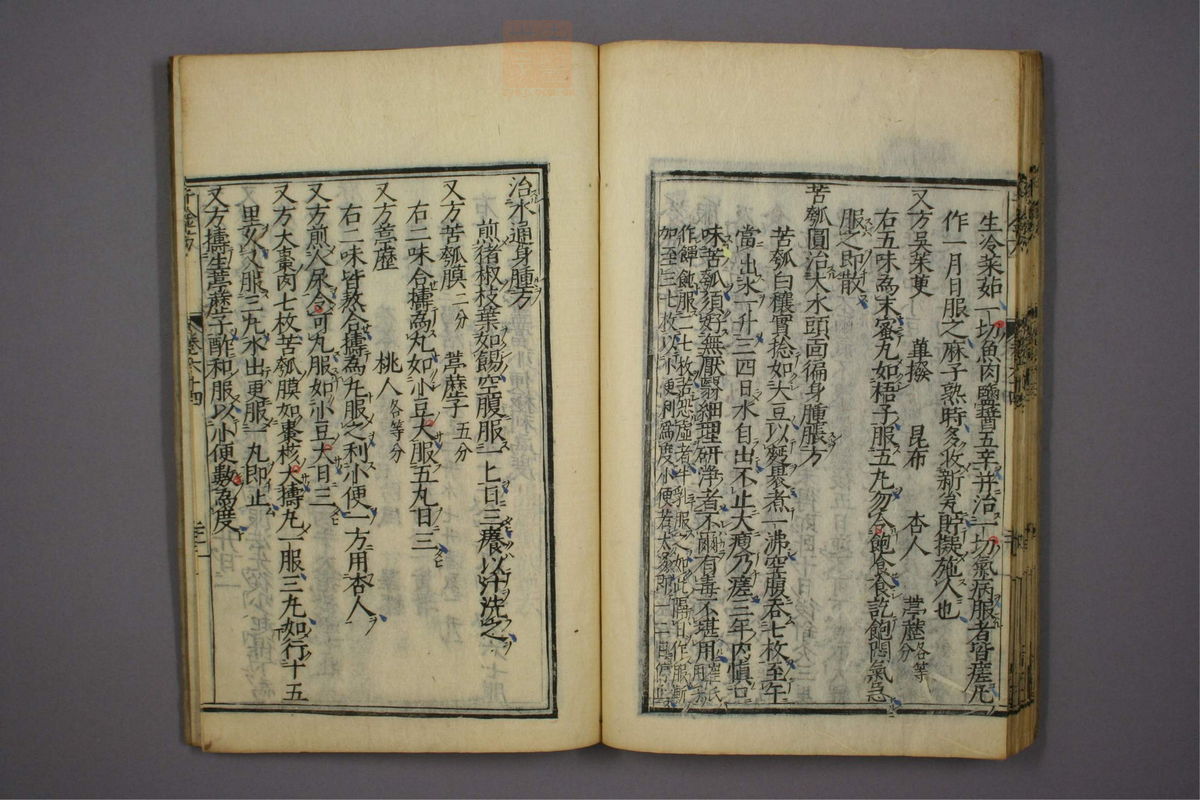 生冷菜如一切魚肉鹽醬五辛并治一切氣病服者皆瘥凡
作一月日服之麻子熟時多收新瓮貯擬施人也
又方吳茱萸 蓽撥 昆布 杏人 葶藶各等分
右五味為末蜜丸如梧子服五丸勿令飽食食訖飽悶氣急
服之即散
苦瓠圓治大水頭面徧身腫脹方
苦瓠白穰實捻如大豆以麪裹煮一沸空腹吞七枚至午
當出水一升三四日水自出不止大瘦乃瘥三年內慎口
味苦瓠須好無厭翳細理研淨者不爾有毒不堪用崔氏用子
作餛飩服二七枚若恐虛者牛乳服之如此隔日作服漸
加至三七枚以小便利為度小便若太多即一二日停止
治水通身腫方
煎猪椒枝葉如餳空腹服一匕日三癢以汁洗之
又方苦瓠膜二分 葶藶子五分
右二味合擣為丸如小豆大服五丸日三
又方葶藶 桃人各等分
右二味皆熬合擣為丸服之利小便一方用杏人
又方煎人尿令可丸服如小豆大日三
又方大棗肉七枚苦瓠膜如棗核大擣丸一服三丸如行十五
里又服三丸水出更服一丸即止
又方擣生葶藶子醋和服以小便數為度